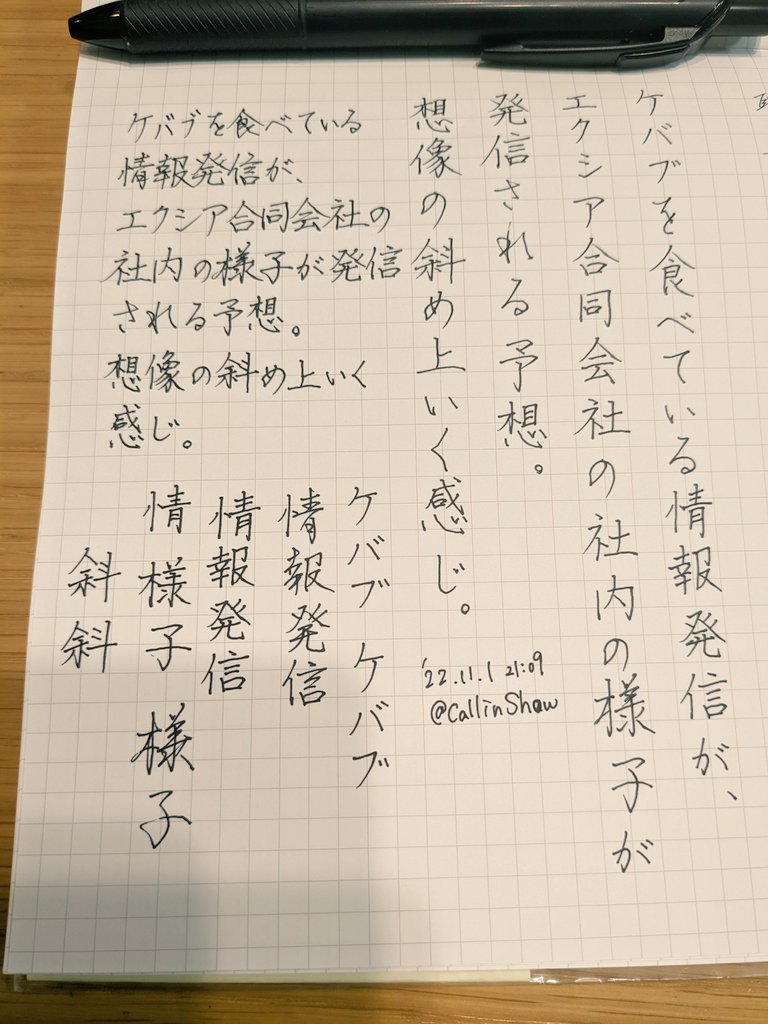 ケバブを食べている情報発信が、
エクシア合同会社の社内の様子が
発信される予想。
想像の斜め上いく感じ。
'22.11.1 21:09
@CallinShaw
ケバブを食べている
情報発信が、
エクシア合同会社の
社内の様子が発信
される予想。
想像の斜め上いく
感じ。
ケバブ ケバブ
情報発信
情報発信
情様子 様子
斜斜